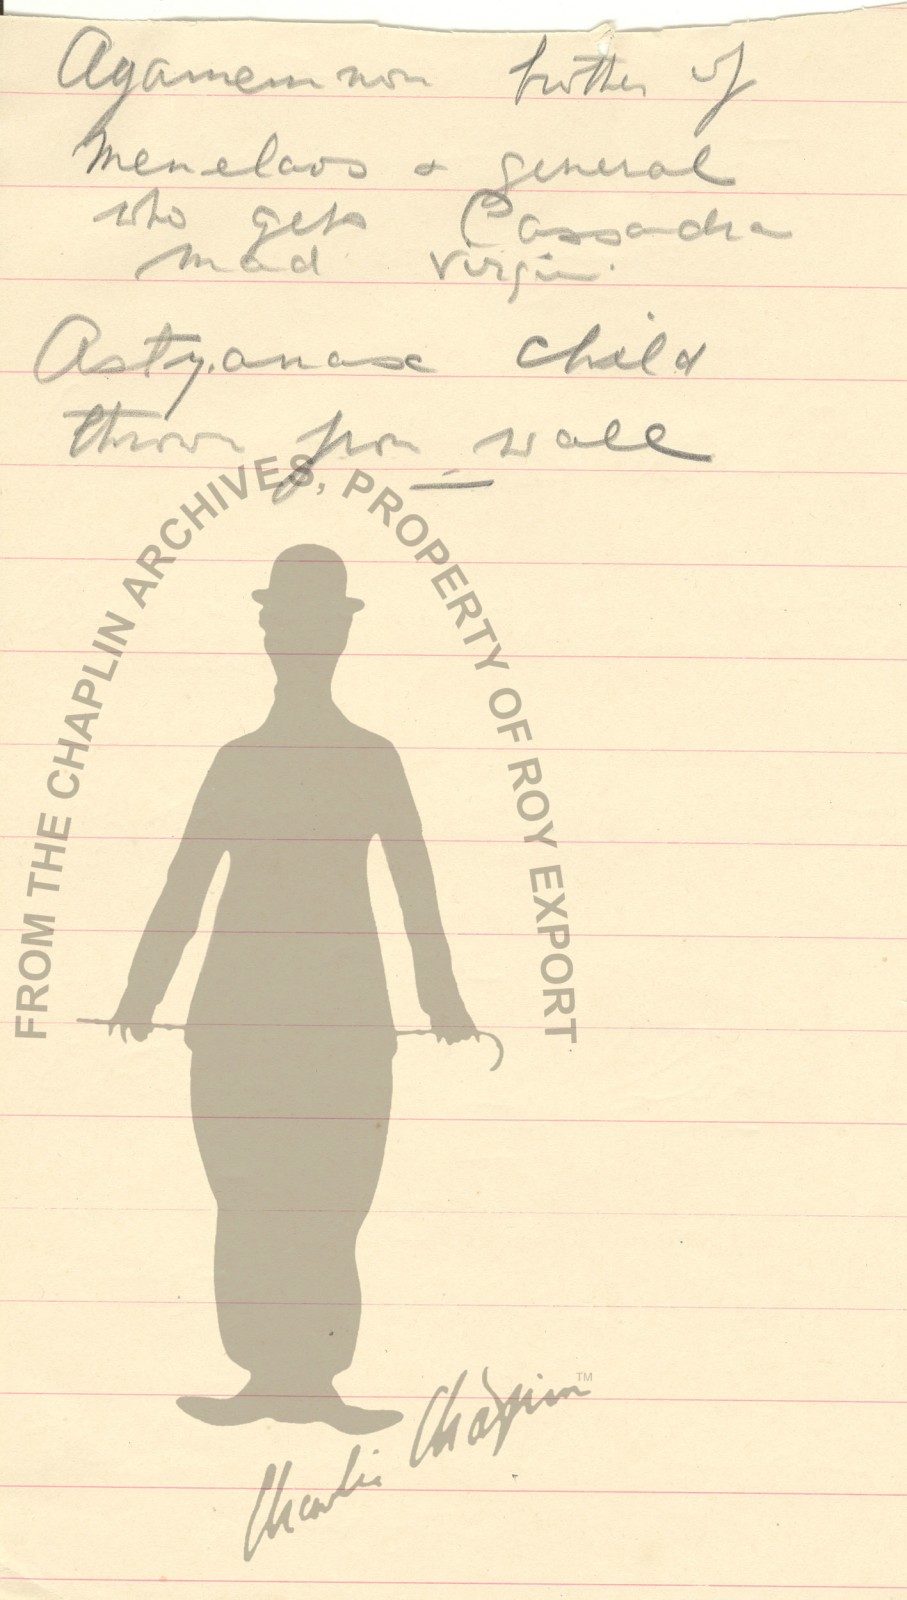 Agamemnon brother of
Menelaos & general
who gets Cassandra
mad virgin.
Astyanax child
thrown from wall
FROM THE CHAPLIN ARCHIVES, PROPERTY OF ROY EXPORT
Charlie Chaplin TM